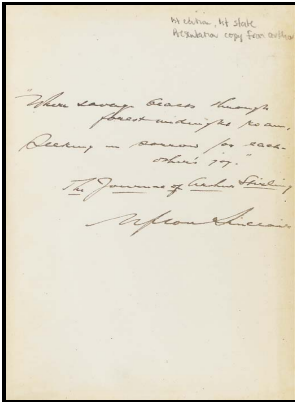 1st edition, 1st state
Presentation copy from author
"Where savage beasts through
forest midnight roam,
Seeking in sorrow for each
other's joy."
The Journal of Arthur Stirling
Upton Sinclair